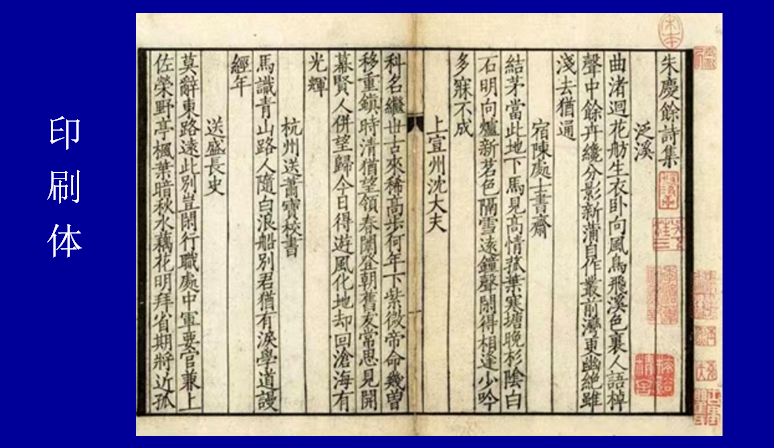 印刷体
朱慶餘詩集
泛溪
曲渚迴花舫生衣卧向風鳥飛溪色裏人語棹
聲中餘卉纔分影新蒲自作叢前灣更幽絕雖
淺去猶通
宿陳處士書齋
結茅當此地下馬見高情菰葉寒塘晚杉陰白
石明向爐新茗色隔雪遠鐘聲閑得相逢少吟
多寐不成
上宣州沈大夫
科名繼世古來稀高步何年下紫微帝命幾曽
移重鎮時清猶望領春闈登朝舊友常思見開
幕賢人併望歸今日得遊風化地却回滄海有
光輝
杭州送蕭寶校書
馬識青山路人隨白浪船別君猶有淚學道謾
經年
送盛長史
莫辭東路遠此別豈閑行職處中軍要官兼上
佐榮野亭楓葉暗秋水藕花明拜省期將近孤